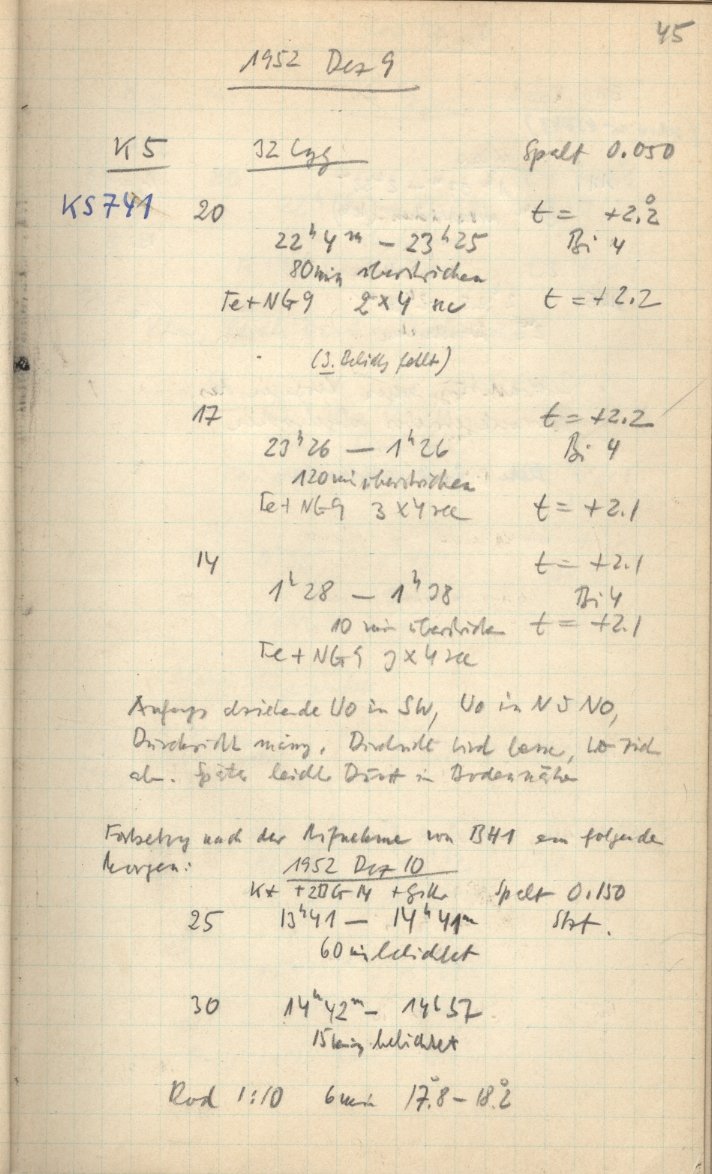 45
1952 Dez 9
K5 32 Cyg Spalt 0.050
KS741 20 t = +2.°2
22ʰ4ᵐ — 23ʰ25 Bi 4
80min überstrichen
Fe+NG9 2×4 sec t = +2.2
(3. Belicht fehlt)
17 t = +2.2
23ʰ26 — 1ʰ26 Bi 4
120min überstrichen
Fe+NG9 3×4 sec t = +2.1
14 t = +2.1
1ʰ28 — 1ʰ38 Bi 4
10 min überstrichen t = +2.1
Fe+NG9 3×4 sec
Anfangs in SW, in N NO,
Durchsicht mässig. Durchsicht wird besser,
ab. Später leichter Dunst in Bodennähe
Fortsetzung nach der Aufnahme von BH1 am folgenden
Morgen: 1952 Dez 10
Spalt 0.150
25 13ʰ41 — 14ʰ41ᵐ
60 min belichtet
30 14ʰ42ᵐ — 14ʰ57
15min belichtet
Rod 1:10 6 min 17.°8 — 18.°2